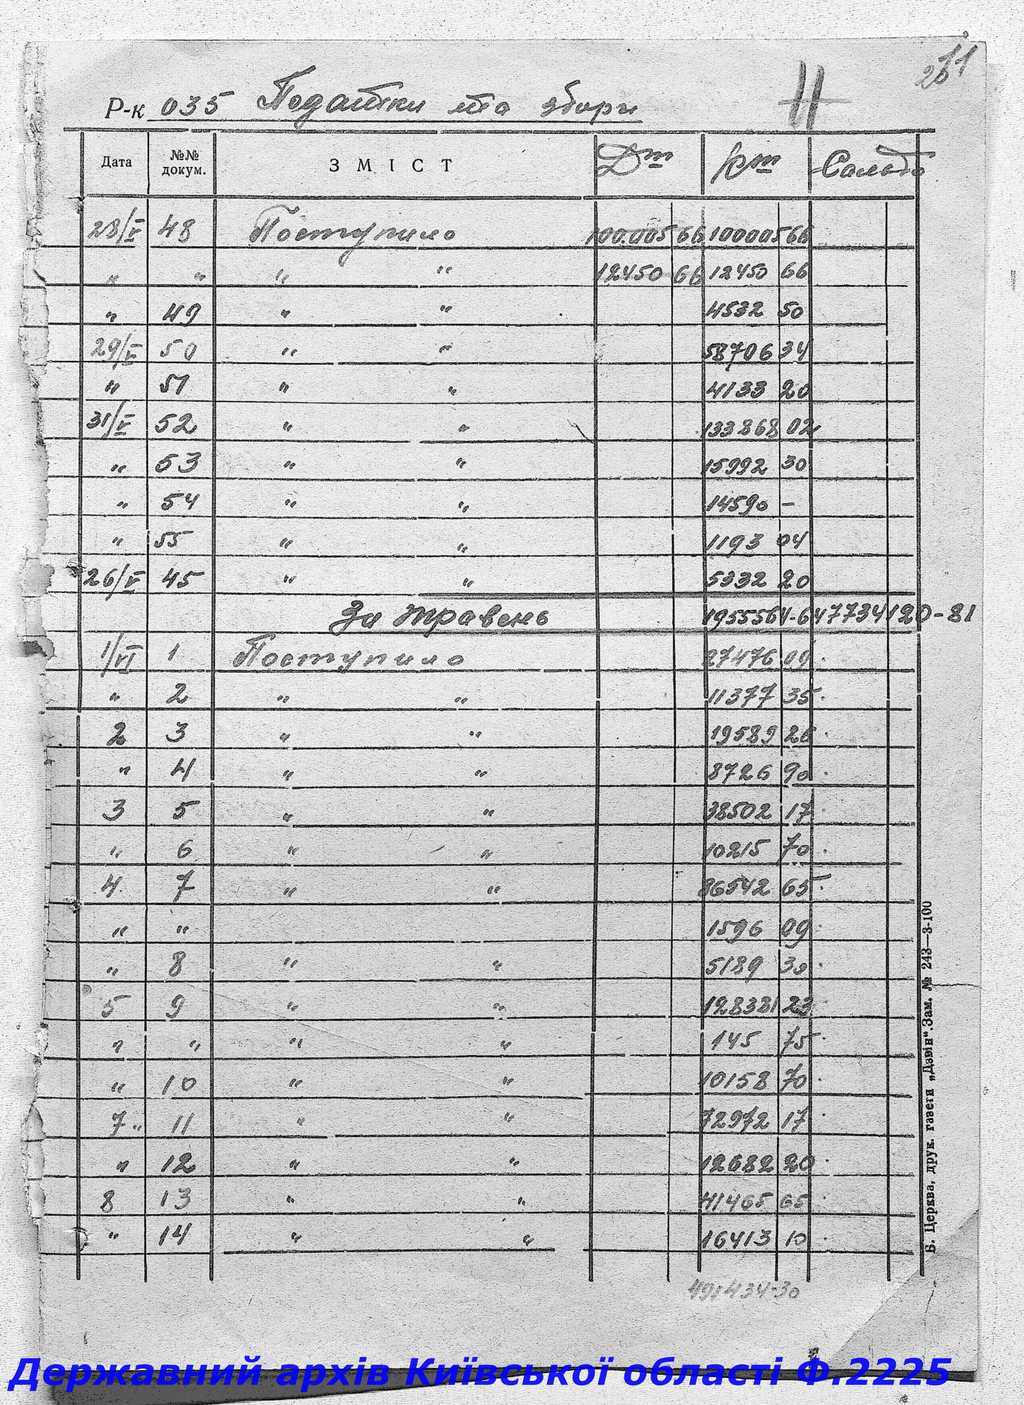 11
Р-к 035 Податки та збори
Дата №№ докум. ЗМІСТ Дт Кт Сальдо
28/V 48 Поступило 100.005 66 100005 66
„ „ „ „ 12450 66 12450 66
„ 49 „ „ 4532 50
29/V 50 „ „ 58706 34
„ 51 „ „ 4133 20
31/V 52 „ „ 133868 02
„ 53 „ „ 15992 30
„ 54 „ „ 14590 –
„ 55 „ „ 1193 04
26/V 45 „ „ 5332 20
За травень
1/VI 1 Поступило 27476 09
„ 2 „ „ 11377 35
2 3 „ „ 19589 26
„ 4 „ „ 8726 90
3 5 „ „ 38502 17
„ 6 „ „ 10215 70
4 7 „ „ 86542 65
„ „ 1596 09
„ 8 „ „ 5189 30
5 9 „ „ 128381 23
„ „ „ „ 145 75
„ 10 „ „ 10158 70
7 „ 11 „ „ 72972 17
„ 12 „ „ 12682 20
8 13 „ „ 41465 65
„ 14 „ „ 16413 10
Б. Церква, друк. газети „Дзвін“. Зам. № 243—3-100
Державний архів Київської області Ф.2225